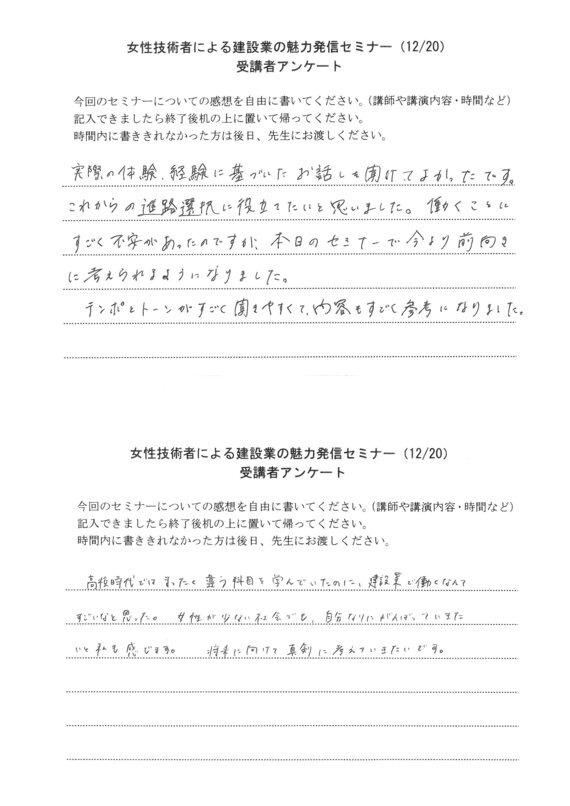 女性技術者による建設業の魅力発信セミナー（12/20）
受講者アンケート
今回のセミナーについての感想を自由に書いてください。（講師や講演内容・時間など）
記入できましたら終了後机の上に置いて帰ってください。
時間内に書ききれなかった方は後日、先生にお渡しください。
実際の体験、経験に基づいたお話しを聞けてよかったです。
これからの進路選択に役立てたいと思いました。働くことに
すごく不安があったのですが、本日のセミナーで今より前向き
に考えられるようになりました。
テンポとトーンがすごく聞きやすくて、内容もすごく参考になりました。
女性技術者による建設業の魅力発信セミナー（12/20）
受講者アンケート
今回のセミナーについての感想を自由に書いてください。（講師や講演内容・時間など）
記入できましたら終了後机の上に置いて帰ってください。
時間内に書ききれなかった方は後日、先生にお渡しください。
高校時代ではまったく違う科目を学んでいたのに、建設業で働くなんて
すごいなと思った。女性が少ない社会でも、自分なりにがんばっていきた
いと私も感じます。将来に向けて真剣に考えていきたいです。